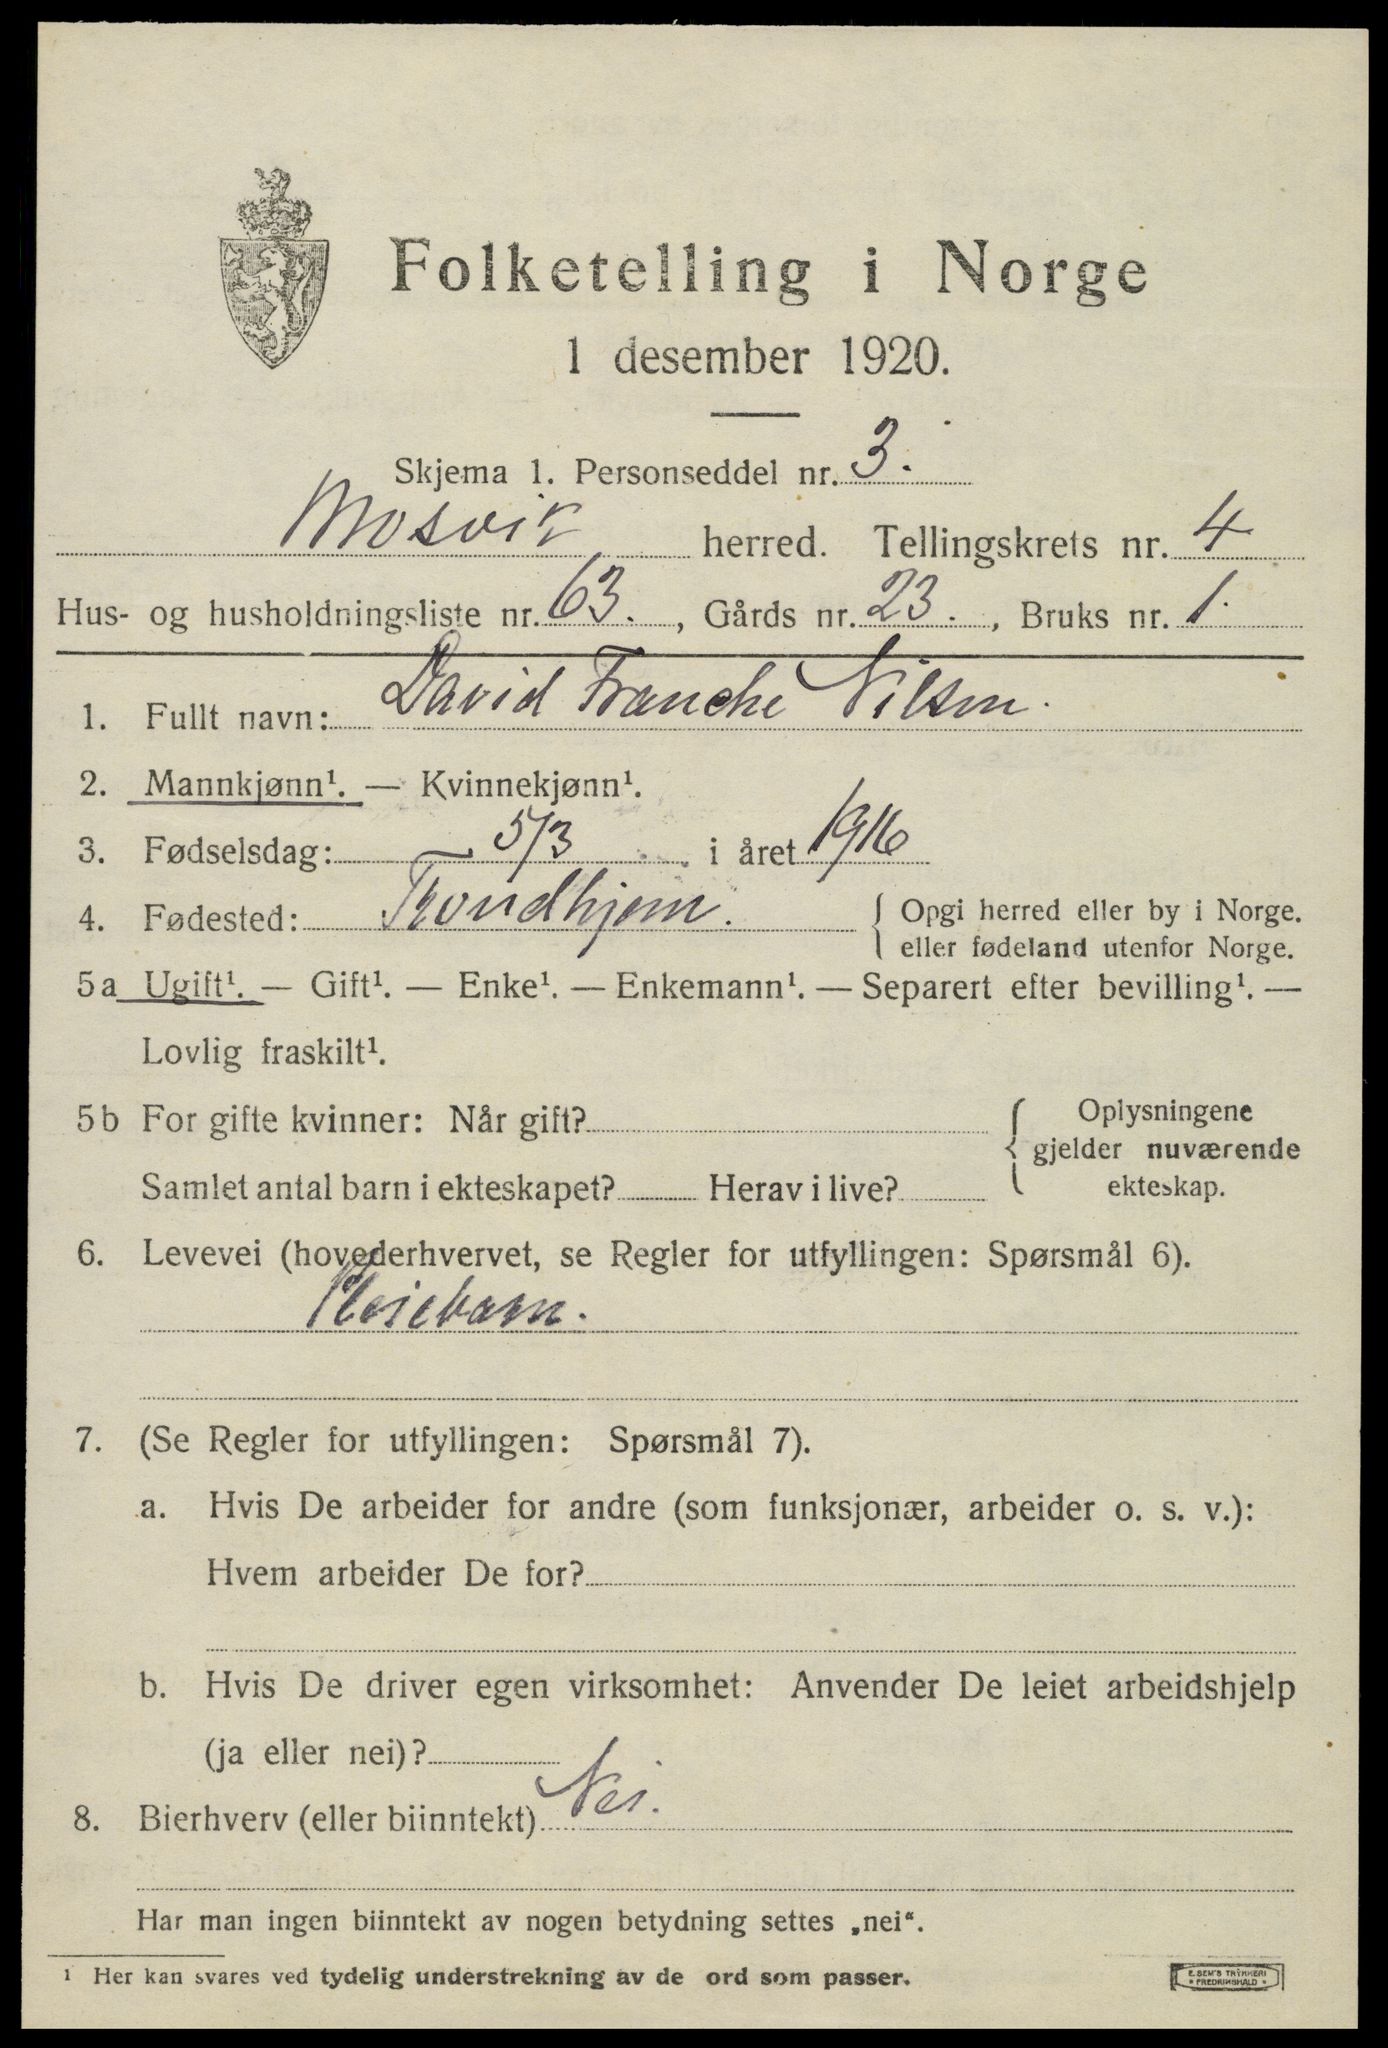 Folketelling i Norge
1 desember 1920.
Skjema 1. Personseddel nr. 3.
Mosvik herred. Tellingskrets nr. 4
Hus- og husholdningsliste nr. 63. , Gårds nr. 23. , Bruks nr. 1.
1. Fullt navn: David Franche Nilsen.
2. Mannkjønn¹. — Kvinnekjønn¹.
3. Fødselsdag: 5/3 i året 1916
4. Fødested: Trondhjem. { Opgi herred eller by i Norge.
eller fødeland utenfor Norge.
5a Ugift¹. — Gift¹. — Enke¹. — Enkemann¹. — Separert efter bevilling¹. —
Lovlig fraskilt¹.
5b For gifte kvinner: Når gift? { Oplysningene
gjelder nuværende
Samlet antal barn i ekteskapet? Herav i live? ekteskap.
6. Levevei (hovederhvervet, se Regler for utfyllingen: Spørsmål 6).
Pleiebarn.
7. (Se Regler for utfyllingen: Spørsmål 7).
a. Hvis De arbeider for andre (som funksjonær, arbeider o. s. v.):
Hvem arbeider De for?
b. Hvis De driver egen virksomhet: Anvender De leiet arbeidshjelp
(ja eller nei)?
8. Bierhverv (eller biinntekt) Nei.
Har man ingen biinntekt av nogen betydning settes „nei“.
¹ Her kan svares ved tydelig understrekning av de ord som passer.
E. SEM'S TRYKKERI
* FREDRIKSHALD *